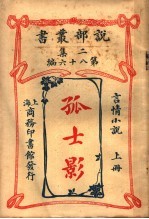 說部叢書
二集
第八十六編
言情小說
上冊
孤士影
上海商務印書館發行